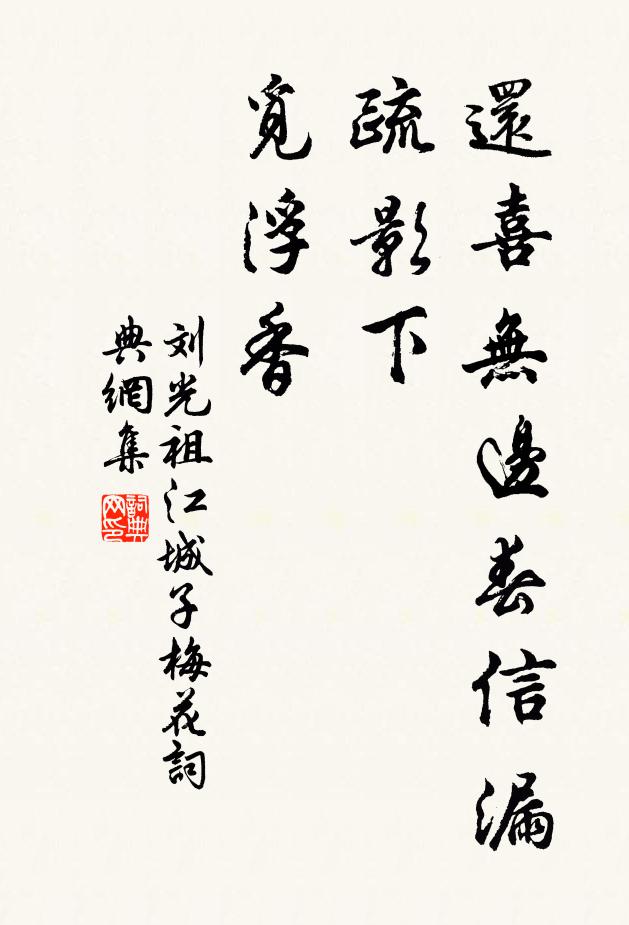 還喜無邊春信漏
疏影下
覓浮香
刘光祖江城子梅花詞
典網集
詞典网印